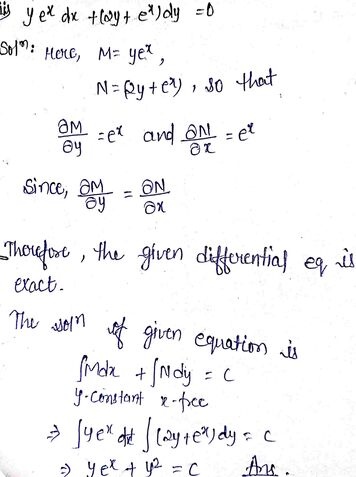 ii) y eˣ dx + (2y + eˣ) dy = 0
Solⁿ: Here, M = yeˣ,
N = (2y + eˣ), so that
∂M/∂y = eˣ and ∂N/∂x = eˣ
Since, ∂M/∂y = ∂N/∂x
Therefore, the given differential eq is
exact.
The solⁿ of given equation is
∫Mdx + ∫Ndy = C
y-constant x-free
⇒ ∫yeˣ dx ∫(2y+eˣ) dy = c
⇒ yeˣ + y² = C Ans.